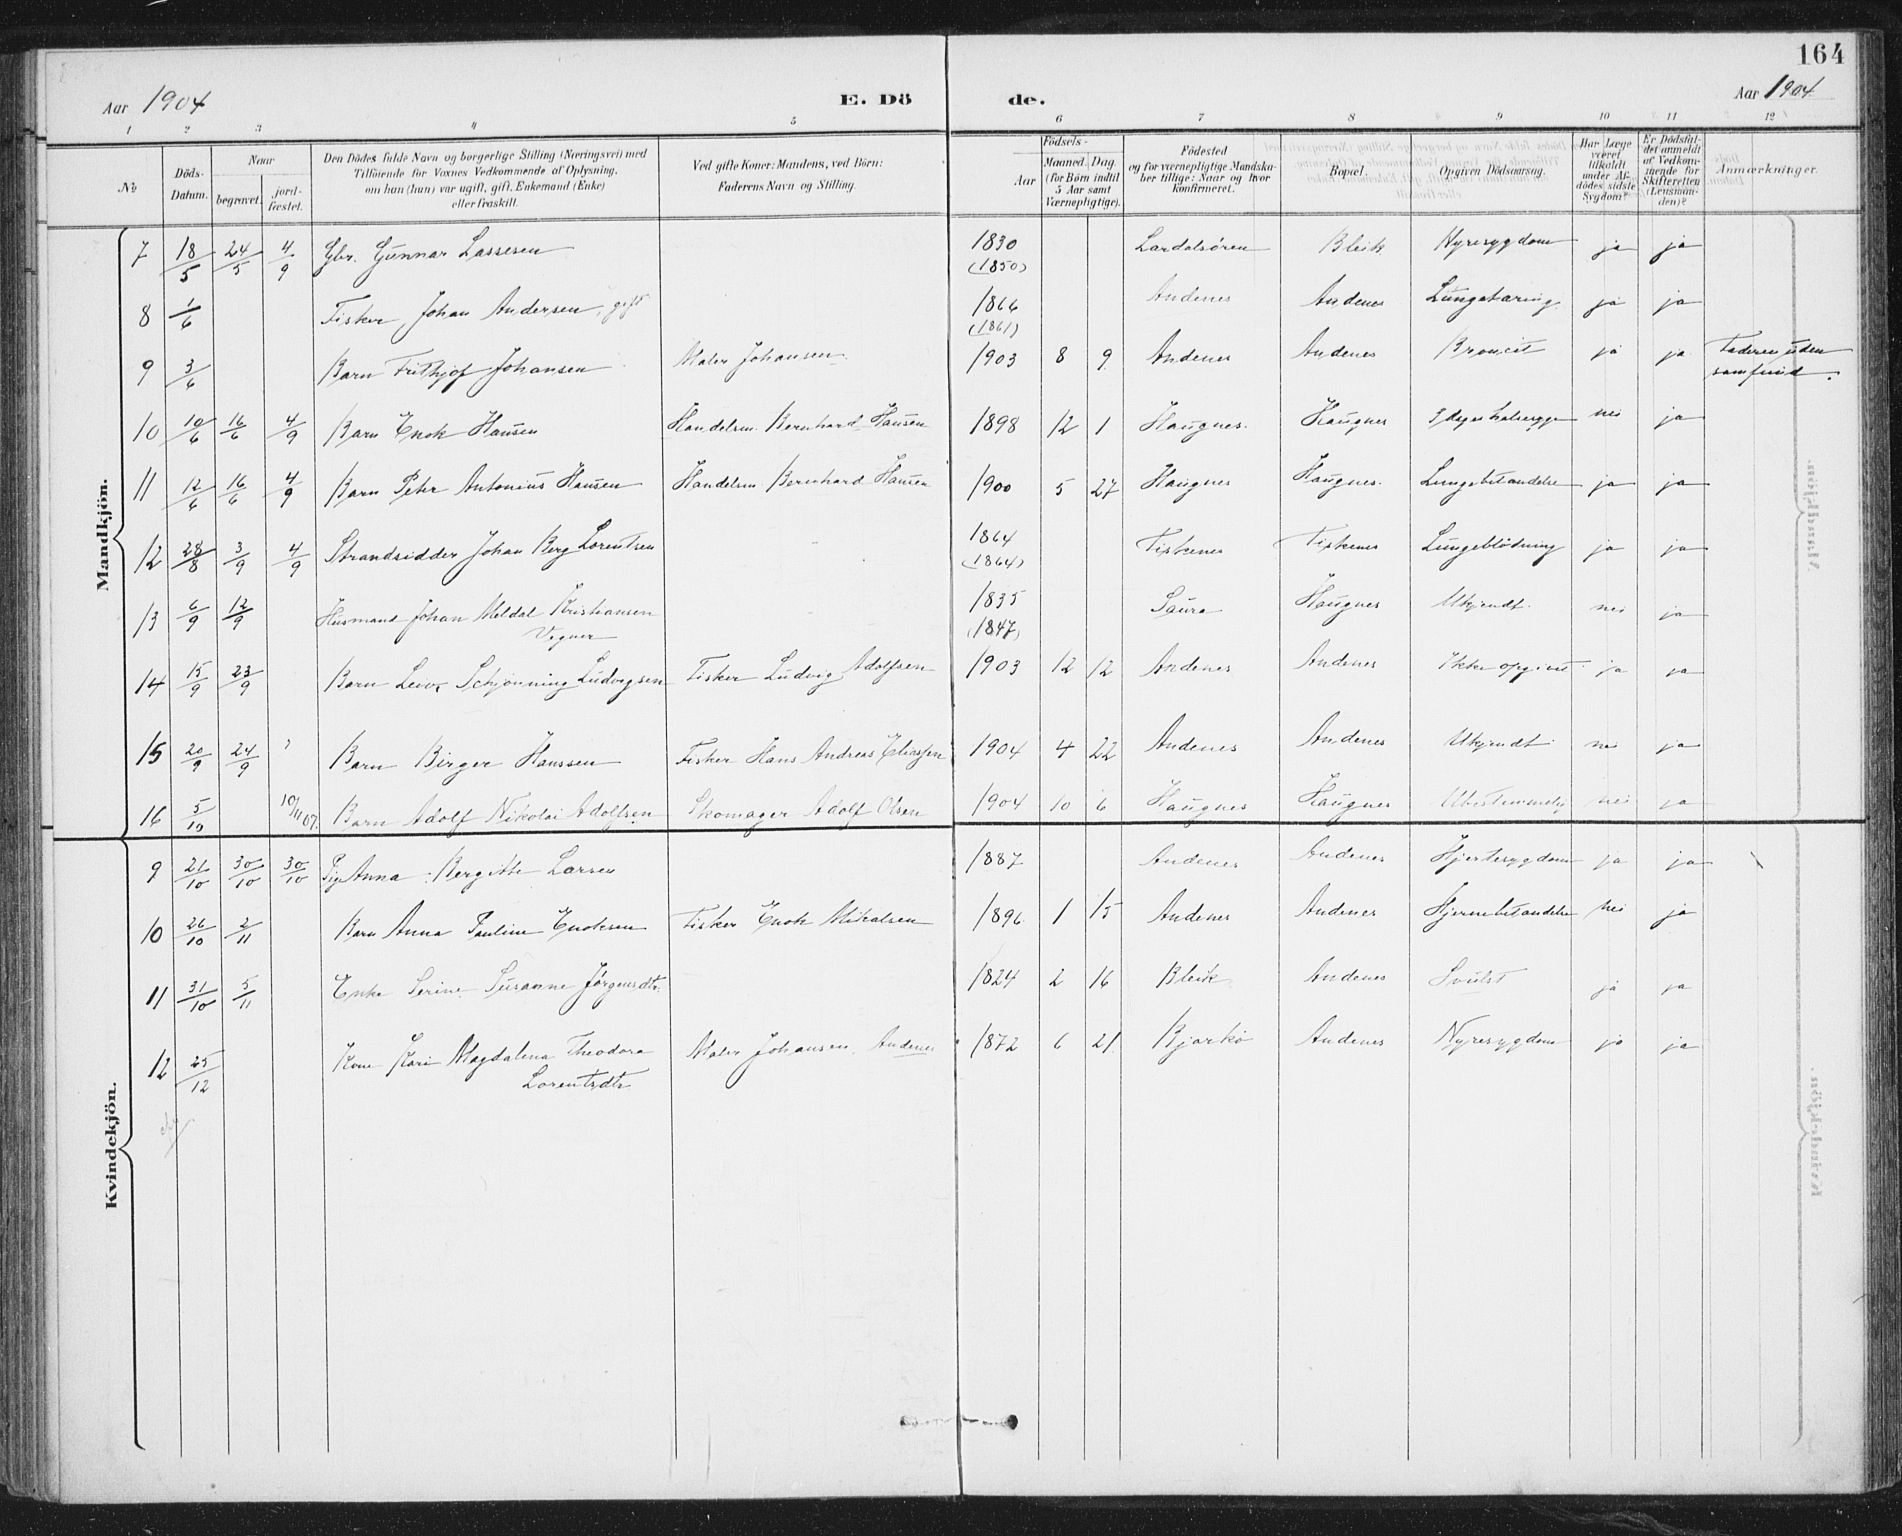 164
Aar 1904 E. Dö de. Aar 1904
1 2 3 4 5 6 7 8 9 10 11 12
No
Döds-Datum.
Naar
begravet.
jord-fæstet.
Den Dödes fulde Navn og borgerlige Stilling (Næringsvei) med
Tilföiende for Voxnes Vedkommende af Oplysning,
om han (hun) var ugift, gift, Enkemand (Enke)
eller fraskilt.
Ved gifte Koner: Mandens, ved Börn:
Faderens Navn og Stilling.
Födsels-
Aar
Maaned. Dag.
(for Börn indtil
5 Aar samt
Værnepligtige).
Födested
og for værnepligtige Mandska-
ber tillige: Naar og hvor
konfirmeret.
Bopæl.
Opgiven Dödsaarsag.
Har Læge
været
tilkaldt
under Af-
dödes sidste
Sygdom?
Er Dödsfal-
det anmeldt
af Vedkom-
mende for
Skifteretten
(Lensman-
den)?
Anmærkninger.
Mandkjön.
7 18/5 24/5 4/9 Gbr. Gunnar Lassesen 1830 (1850) Lardalsören Bleik Nyresygdom ja ja
8 1/6 Fisker Johan Andersen, gift 1866 (1861) Andenes Andenes Lungetæring ja ja
9 3/6 Barn Frithjof Johansen Maler Johansen 1903 8 9 Andenes Andenes Broncit ja ja Faderen uden
samfund.
10 10/6 16/6 4/9 Barn Enok Hansen Handelsm. Bernhard Hansen 1898 12 1 Haugnes Haugnes nei ja
11 12/6 16/6 4/9 Barn Peter Antonius Hansen Handelsm. Bernhard Hansen 1900 5 27 Haugnes Haugnes. Lungebetændelse ja ja
12 28/8 3/9 4/9 Strandsidder Johan Berg Lorentsen 1864 (1864) Fiskenes Fiskenes Lungeblödning ja ja
13 6/9 12/9 Husmand Johan Meldal Kristiansen
Vegner 1835 (1847) Saura Haugnes Ukjendt. nei ja
14 15/9 23/9 Barn Leiv Schjönning Ludvigsen Fisker Ludvig Adolfsen 1903 12 12 Andenes Andenes Ikke opgivet ja ja
15 20/9 24/9 Barn Birger Hanssen Fisker Hans Andreas Eliassen 1904 4 22 Andenes Andenes Ukjendt nei ja
16 5/10 10/11 07. Barn Adolf Nikolai Adolfsen Skomager Adolf Olsen 1904 10 6 Haugnes Haugnes Ubestemmelig nei ja
Kvindekjön.
9 21/10 30/10 30/10 Pige Anna Bergitte Larsen 1887 Andenes Andenes Hjertesygdom ja ja
10 26/10 2/11 Barn Anna Pauline Enoksen Fisker Enok Mikalsen 1896 1 15 Andenes Andenes Hjernebetændelse nei ja
11 31/10 5/11 Enke Serine Susanne Jörgensdtr. 1824 2 16 Bleik Andenes Svulst ja ja
12 25/12 Kone Kari Magdalena Theodora
Lorentsdtr Maler Johansen, Andenes 1872 6 21 Bjarkö Andenes Nyresygdom ja ja